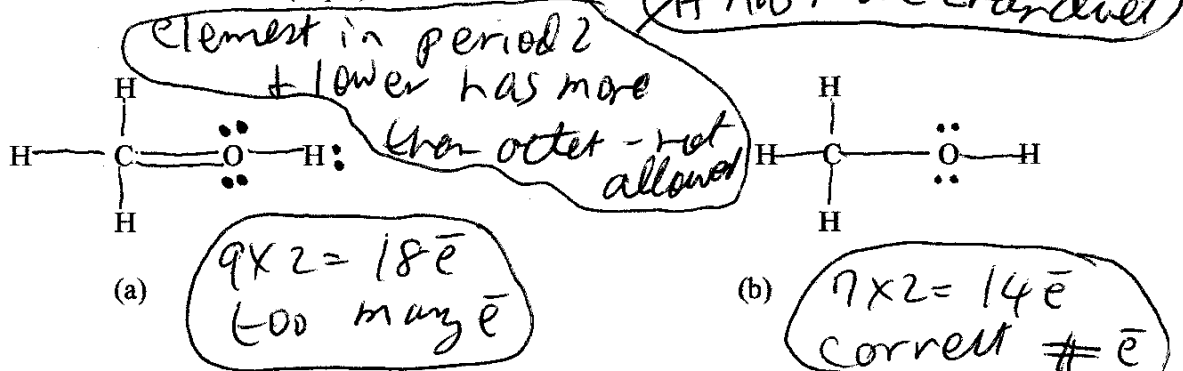 element in period 2
+ lower has more
than octet - not
allowed
H H
H C O H: H C O H
H H
(a) 9x2= 18ē
too many ē
(b) 7x2= 14ē
correct # ē